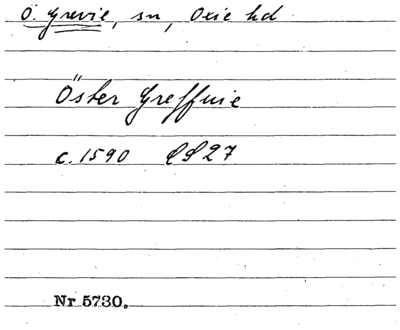 Ö. Grevie, sn, Oxie hd
Öster Greffuie
c. 1590 LS 27
Nr 5730.